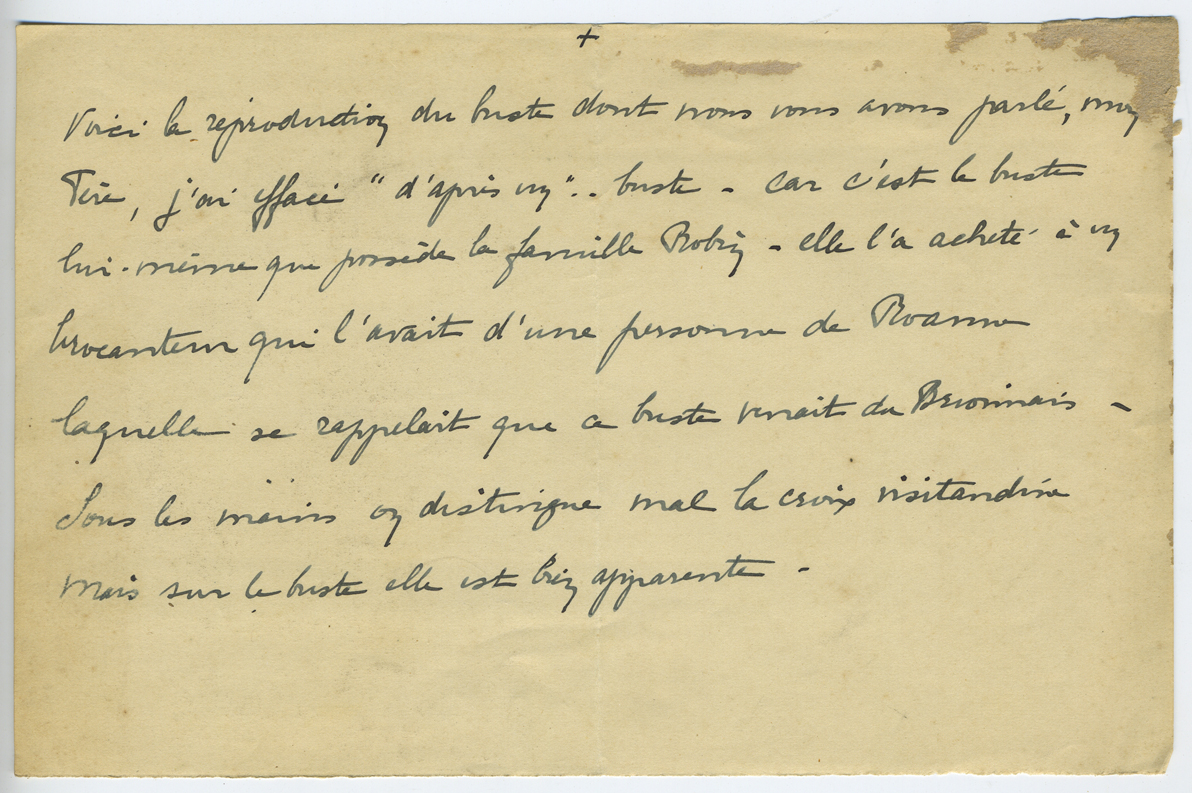 +
Voici la reproduction du buste dont nous vous avons parlé, mon
Père, j'ai effacé " d'après un ".. buste - car c'est le buste
lui-même que possède la famille Robin - elle l'a acheté à un
brocanteur qui l'avait d'une personne de Roanne
laquelle se rappelait que ce buste venait du Brionnais -
Sous les mains on distingue mal la croix visitandine
mais sur le buste elle est bien apparente -